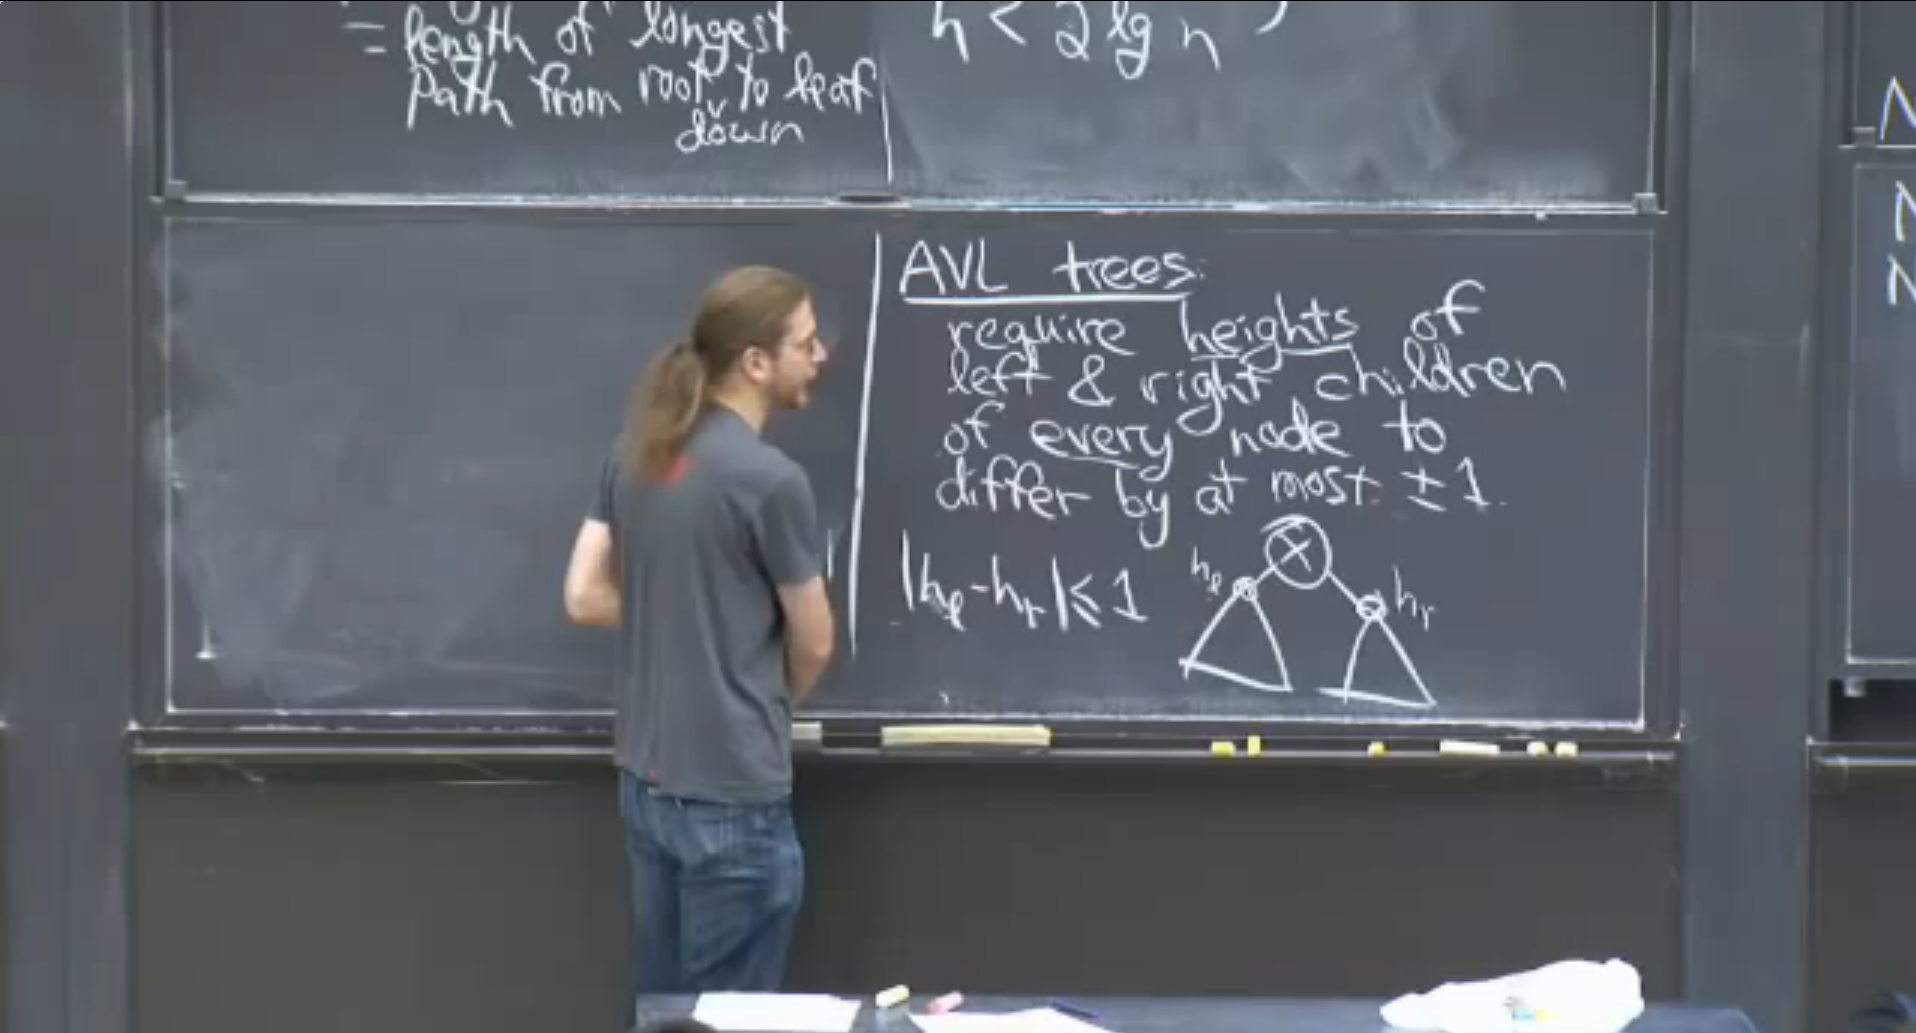 = length of longest
path from root to leaf
down
h < 2 lg n
AVL trees:
require heights of
left & right children
of every node to
differ by at most ±1.
|hₗ-hᵣ|≤1
x
hₗ
hᵣ
N
N
N